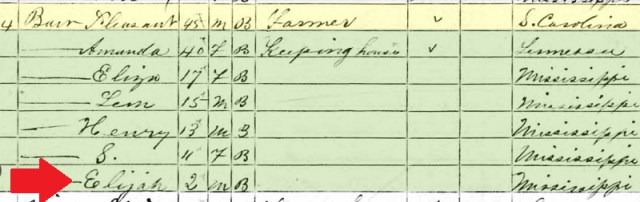 4 Burr Pleasant 45 m B Farmer S. Carolina
Amanda 40 F B Keeping house Tennessee
Eliza 17 F B Mississippi
Lem 15 m B Mississippi
Henry 13 m B Mississippi
S. 11 F B Mississippi
Elijah 2 m B Mississippi